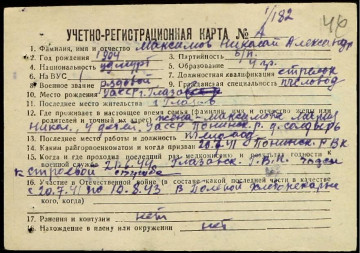 1/182
46
УЧЕТНО-РЕГИСТРАЦИОННАЯ КАРТА № А
1. Фамилия, имя и отчество Максимов Николай Александр
2. Год рождения 1904 3. Партийность б/п.
4. Национальность удмурт 5. Образование 4 гр.
6. На ВУС 1 7. Должностная квалификация стрелок
8. Военное звание рядовой 9. Гражданская специальность
10. Место рождения УАССР, Глазовск
11. Последнее место жительства г. Глазов
12. Где проживает в настоящее время семья (фамилия, имя и отчество жены или
родителей и точный их адрес) жена - Максимова Мария
Никол., 4 детей, УАССР Понинск. р. д.
13. Последнее место работы и должность
14. Каким райгорвоенкоматом и когда призван Понинск. РВК
15. Когда и где проходил последний раз медкомиссию и результат годности к
военной службе Глазовск. Г.В.К. годен
к строевой службе
16. Участие в Отечественной войне (в составе какой последней части в качестве
кого) с 20.7.41 по 10.8.42 в
17. Ранения и контузии нет
18. Нахождение в плену или окружении нет